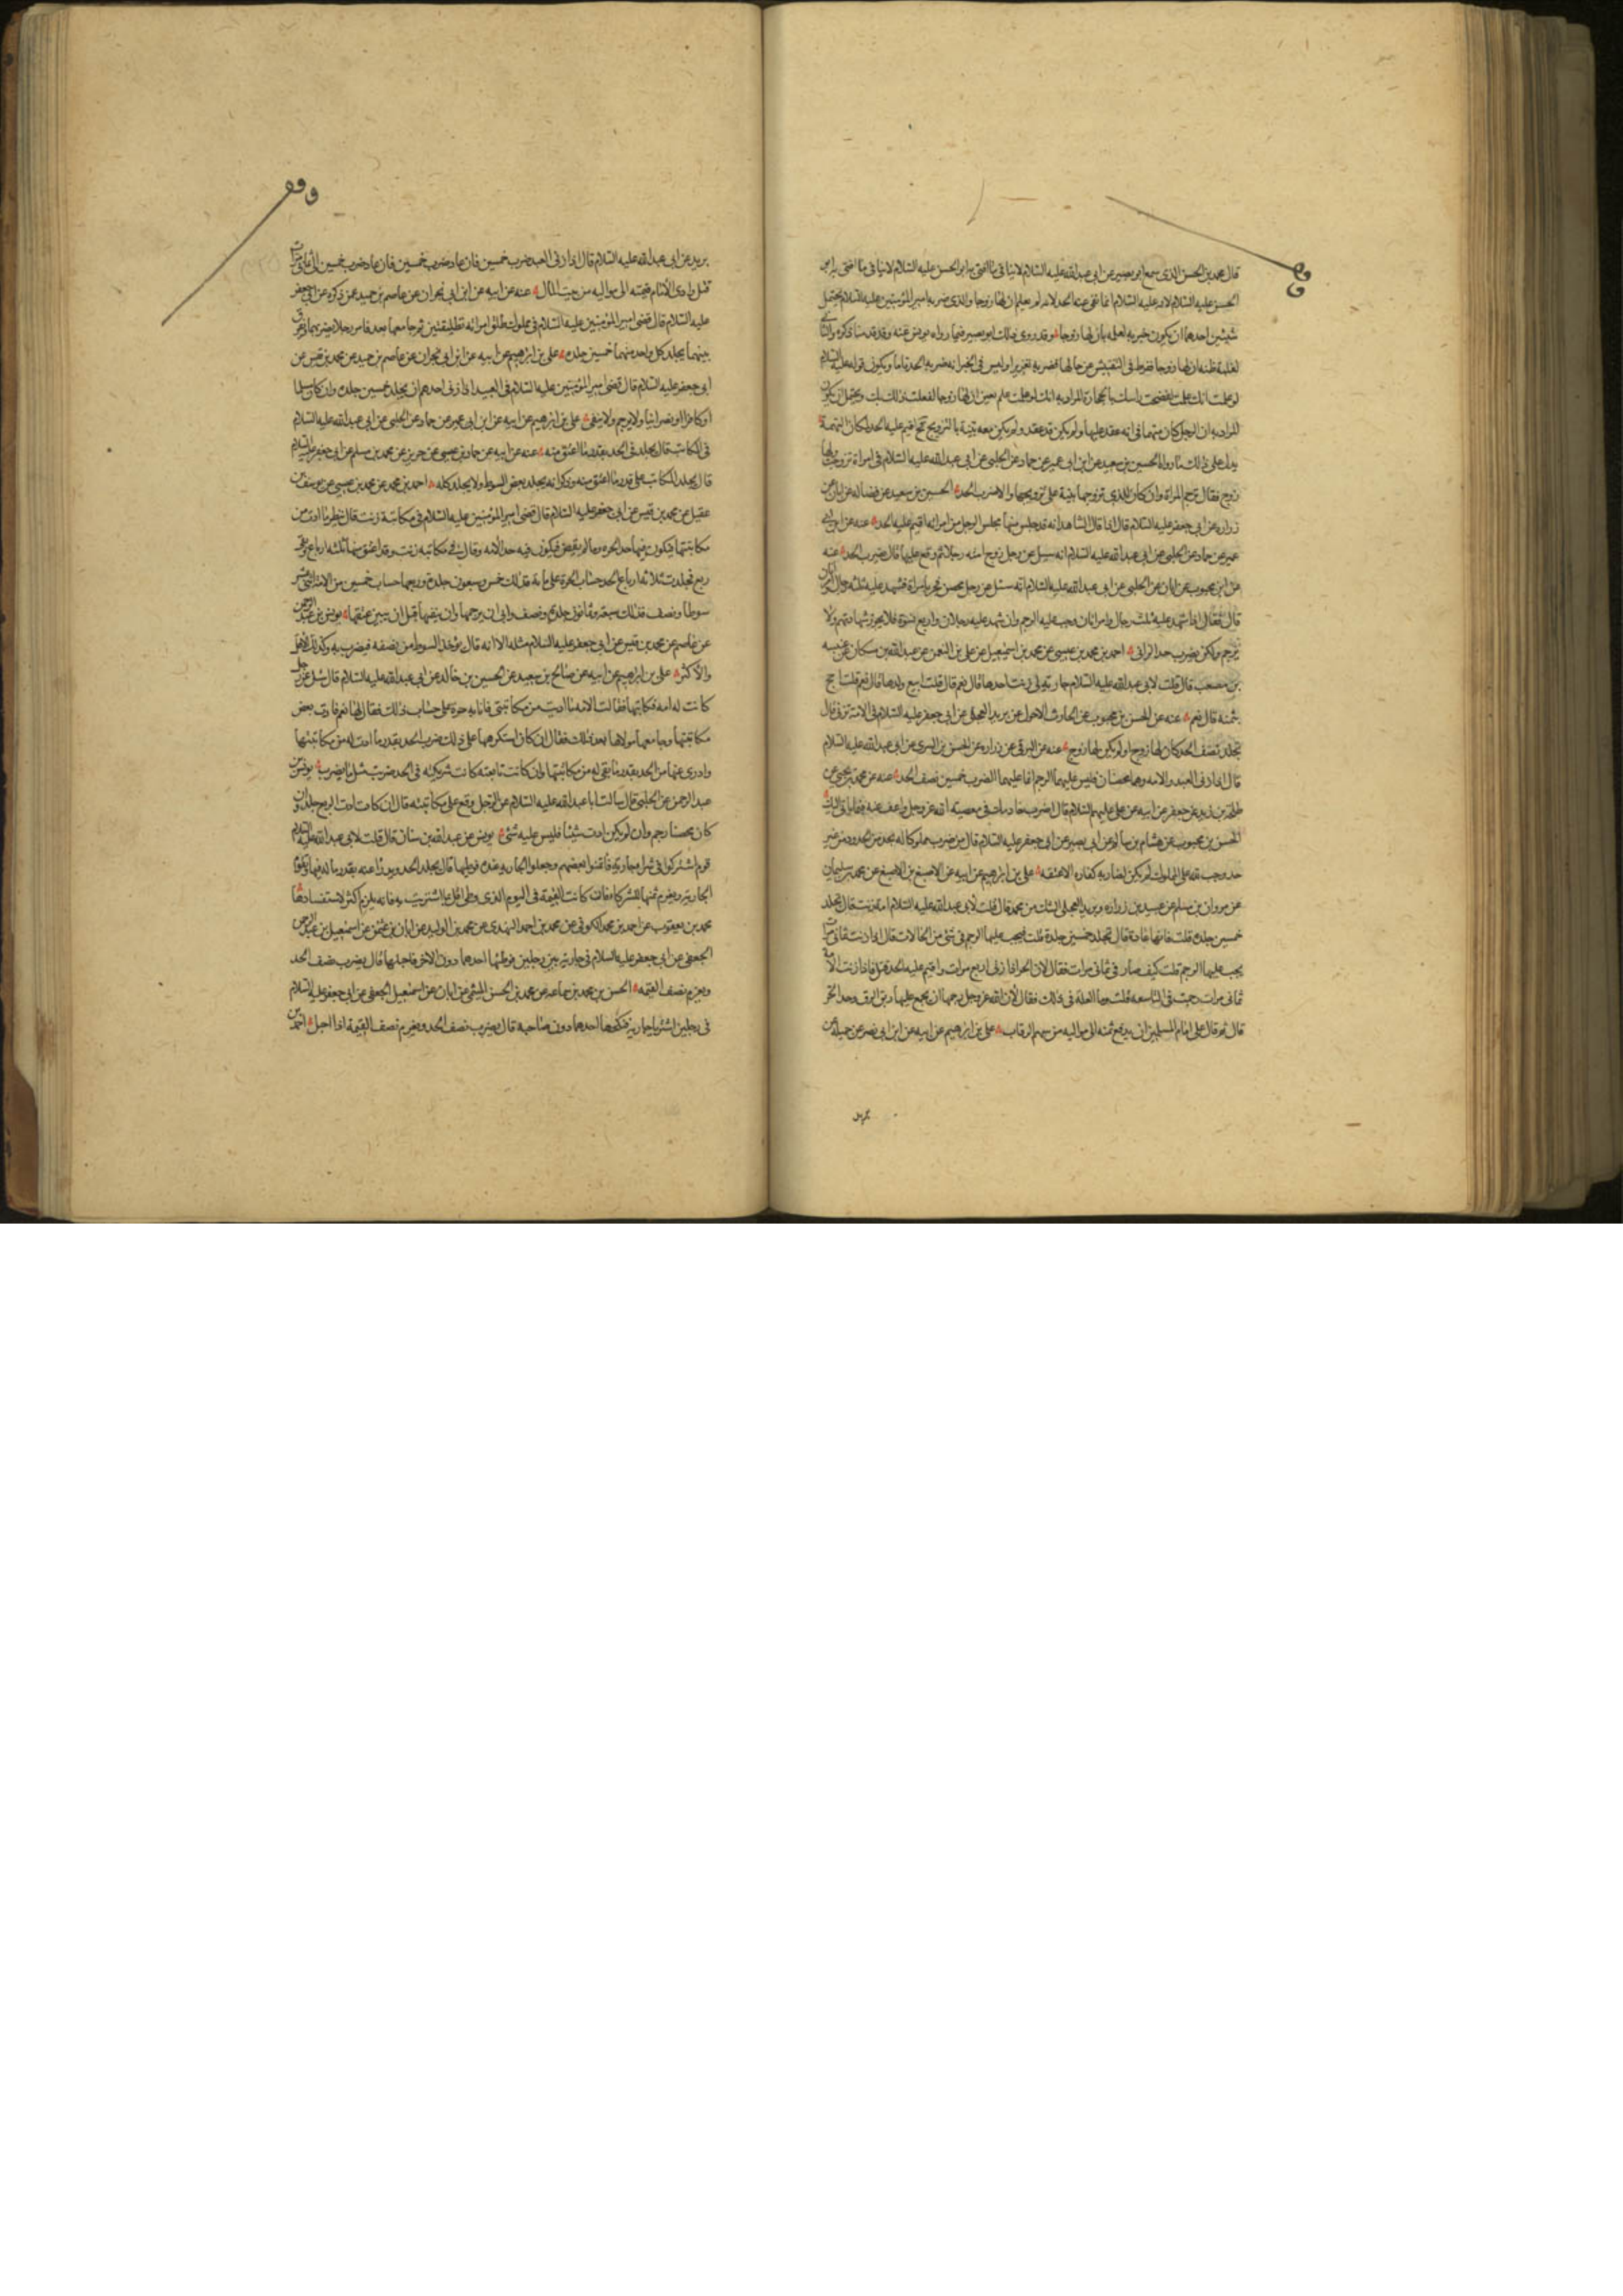 قال محمد بن الحسن الذي سمع ابو بصير عن ابي عبد الله عليه السلام لا ينافي ما افتى به ابو
الحسن عليه السلام لانه عليه السلام انما نفى عنه الحد لانه لم يعلم ان لها زوجا والذي ضربه امير المؤمنين عليه السلام يحتمل
شيئين احدهما ان يكون ضربه لعلمه بان لها زوجا وقد روى ذلك ابو بصير فيما رواه يونس عنه وقد قدمنا ذكره والثاني
لغلبة ظنه ان لها زوجا ففرط في التفتيش عن حالها فضربه تعزيرا وليس في الخبر انه ضربه الحد تاما ويكون قوله عليه السلام
لو علمت انك علمت لفضخت راسك بالحجارة المراد به انك لو علمت علم يقين ان لها زوجا لفعلت ذلك بك ويحتمل ان يكون
المراد به ان الرجل كان متهما في انه عقد عليها ولم يكن قد عقد ولم يكن معه بينة بالتزويج فحينئذ اقيم عليه الحد لمكان التهمة
يدل على ذلك ما رواه الحسين بن سعيد عن ابن ابي عمير عن حماد عن الحلبي عن ابي عبد الله عليه السلام في امراة تزوجت ولها
زوج فقال ترجم المراة وان كان للذي تزوجها بينة على تزويجها والا ضرب الحد الحسين بن سعيد عن فضالة عن ابان عن
زرارة عن ابي جعفر عليه السلام قال اذا قال الشاهد انه قد جلس منها مجلس الرجل من امراته اقيم عليه الحد عنه عن ابن ابي
عمير عن حماد عن الحلبي عن ابي عبد الله عليه السلام انه سئل عن رجل زوج امته رجلا ثم وقع عليها قال يضرب الحد عنه
عن ابن محبوب عن ابان عن الحلبي عن ابي عبد الله عليه السلام انه سئل عن رجل محصن فجر بامراة فشهد عليه ثلثة رجال وامراتان
قال فقال اذا شهد عليه ثلثة رجال وامراتان وجب عليه الرجم وان شهد عليه رجلان واربع نسوة فلا يجوز شهادتهم ولا
يرجم ولكن يضرب حد الزاني احمد بن محمد بن عيسى عن محمد بن اسمعيل عن علي بن النعمن عن عبد الله بن مسكان عن عنبسة
بن مصعب قال قلت لابي عبد الله عليه السلام جارية لي زنت احدها قال نعم قال قلت ابيع ولدها قال نعم قلت احج
بثمنه قال نعم عنه عن الحسن بن محبوب عن الحارث الاحول عن بريد العجلي عن ابي جعفر عليه السلام في الامة تزني قال
تجلد نصف الحد كان لها زوج او لم يكن لها زوج عنه عن البرقي عن زرارة عن الحسن بن السري عن ابي عبد الله عليه السلام
قال اذا زنى العبد والامة وهما محصنان فليس عليهما الرجم انما عليهما الضرب خمسين نصف الحد عنه عن محمد بن يحيى عن
طلحة بن زيد عن جعفر عن ابيه عن علي عليهم السلام قال اضرب خادمك في معصية الله عز وجل واعف عنه فيما ياتي اليك
الحسن بن محبوب عن هشام بن سالم عن ابي بصير عن ابي جعفر عليه السلام قال من ضرب مملوكا له بحد من الحدود من غير
حد وجب لله على المملوك لم يكن لضاربه كفارة الا عتقه علي بن ابرهيم عن ابيه عن الاصبغ بن الاصبغ عن محمد بن سليمان
عن مروان بن مسلم عن عبيد بن زرارة او بريد العجلي الشك من محمد قال قلت لابي عبد الله عليه السلام امة زنت قال تجلد
خمسين جلدة قلت فانها عادت قال تجلد خمسين جلدة قلت فيجب عليها الرجم في شيء من الحالات قال اذا زنت ثماني مرات
يجب عليها الرجم قلت كيف صار في ثماني مرات فقال لان الحر اذا زنى اربع مرات واقيم عليه الحد قتل فاذا زنت الامة
ثماني مرات رجمت في التاسعة قلت وما العلة في ذلك فقال لان الله عز وجل رحمها ان يجمع عليها ربق الرق وحد الحر
قال ثم قال على امام المسلمين ان يدفع ثمنه الى مواليه من سهم الرقاب علي بن ابرهيم عن ابيه عن ابن ابي نصر عن جميل عن
بريد عن ابي عبد الله عليه السلام قال اذا زنى العبد ضرب خمسين فان عاد ضرب خمسين فان عاد ضرب خمسين الى ثماني مرات
قتل وادى الامام قيمته الى مواليه من بيت المال عنه عن ابيه عن ابن ابي نجران عن عاصم بن حميد عمن ذكره عن ابي جعفر
عليه السلام قال قضى امير المؤمنين عليه السلام في مملوك طلق امراته تطليقتين ثم جامعها بعد فامر رجلا يضربهما ويفرق
بينهما يجلد كل واحد منهما خمسين جلدة علي بن ابرهيم عن ابيه عن ابن ابي نجران عن عاصم بن حميد عن محمد بن قيس عن
ابي جعفر عليه السلام قال قضى امير المؤمنين عليه السلام في العبيد اذا زنى احدهم ان يجلد خمسين جلدة وان كان مسلما
او كافرا او نصرانيا ولا يرجم ولا ينفى علي بن ابرهيم عن ابيه عن ابن ابي عمير عن حماد عن الحلبي عن ابي عبد الله عليه السلام
في المكاتب قال يجلد في الحد بقدر ما اعتق منه عنه عن ابيه عن حماد بن عيسى عن حريز عن محمد بن مسلم عن ابي جعفر عليه السلام
قال يجلد المكاتب على قدر ما اعتق منه وذكر انه يجلد ببعض السوط ولا يجلد كله احمد بن محمد عن محمد بن عيسى عن يوسف بن
عقيل عن محمد بن قيس عن ابي جعفر عليه السلام قال قضى امير المؤمنين عليه السلام في مكاتبة زنت قال ينظر ما ادت من
مكاتبتها فيكون فيها حد الحرة وما لم يقض فيكون فيه حد الامة وقال في مكاتبة زنت وقد اعتق منها ثلثة ارباع وبقي
ربع فجلدت ثلاثة ارباع الحد حساب الحرة على مائة فذلك خمس وسبعون جلدة وربعها حساب خمسين من الامة اثنى عشر
سوطا ونصف فذلك سبعة وثمانون جلدة ونصف وابى ان يرجمها وان ينفيها قبل ان يبين عتقها يونس بن عبد الرحمن
عن عاصم عن محمد بن قيس عن ابي جعفر عليه السلام مثله الا انه قال يؤخذ السوط من نصفه فيضرب به وكذلك الاقل
والاكثر علي بن ابرهيم عن ابيه عن صالح بن سعيد عن الحسين بن خالد عن ابي عبد الله عليه السلام قال سئل عن رجل
كانت له امة فكاتبها فقالت الامة ما اديت من مكاتبتي فانا به حرة على حساب ذلك فقال لها نعم فادت بعض
مكاتبتها وجامعها مولاها بعد ذلك فقال ان كان استكرهها على ذلك ضرب الحد بقدر ما ادت له من مكاتبتها
وادرئ عنها من الحد بقدر ما بقي له من مكاتبتها وان كانت تابعته كانت شريكته في الحد ضربت مثل ما يضرب يونس بن
عبد الرحمن عن الحلبي قال سالت ابا عبد الله عليه السلام عن الرجل وقع على مكاتبته قال ان كانت ادت الربع جلد وان
كان محصنا رجم وان لم يكن ادت شيئا فليس عليه شيء يونس عن عبد الله بن سنان قال قلت لابي عبد الله عليه السلام
قوم اشتركوا في شراء جارية فائتمنوا بعضهم وجعلوا الجارية عنده فوطيها قال يجلد الحد ويدرا عنه بقدر ما له فيها وتقوم
الجارية ويغرم ثمنها للشركاء فان كانت القيمة في اليوم الذي وطئ اقل مما اشتريت به فانه يلزم اكثر لاستفسادها
محمد بن يعقوب عن احمد بن محمد الكوفي عن محمد بن احمد النهدي عن محمد بن الوليد عن ابان بن عثمن عن اسمعيل بن عبد الرحمن
الجعفي عن ابي جعفر عليه السلام في جارية بين رجلين فوطئها احدهما دون الاخر فاحبلها قال يضرب نصف الحد
ويغرم نصف القيمة الحسن بن محمد بن سماعة عن محمد بن الحسن الميثمي عن ابان عن اسمعيل الجعفي عن ابي جعفر عليه السلام
في رجلين اشتريا جارية فنكحها احدهما دون صاحبه قال يضرب نصف الحد ويغرم نصف القيمة اذا احبل احمد بن